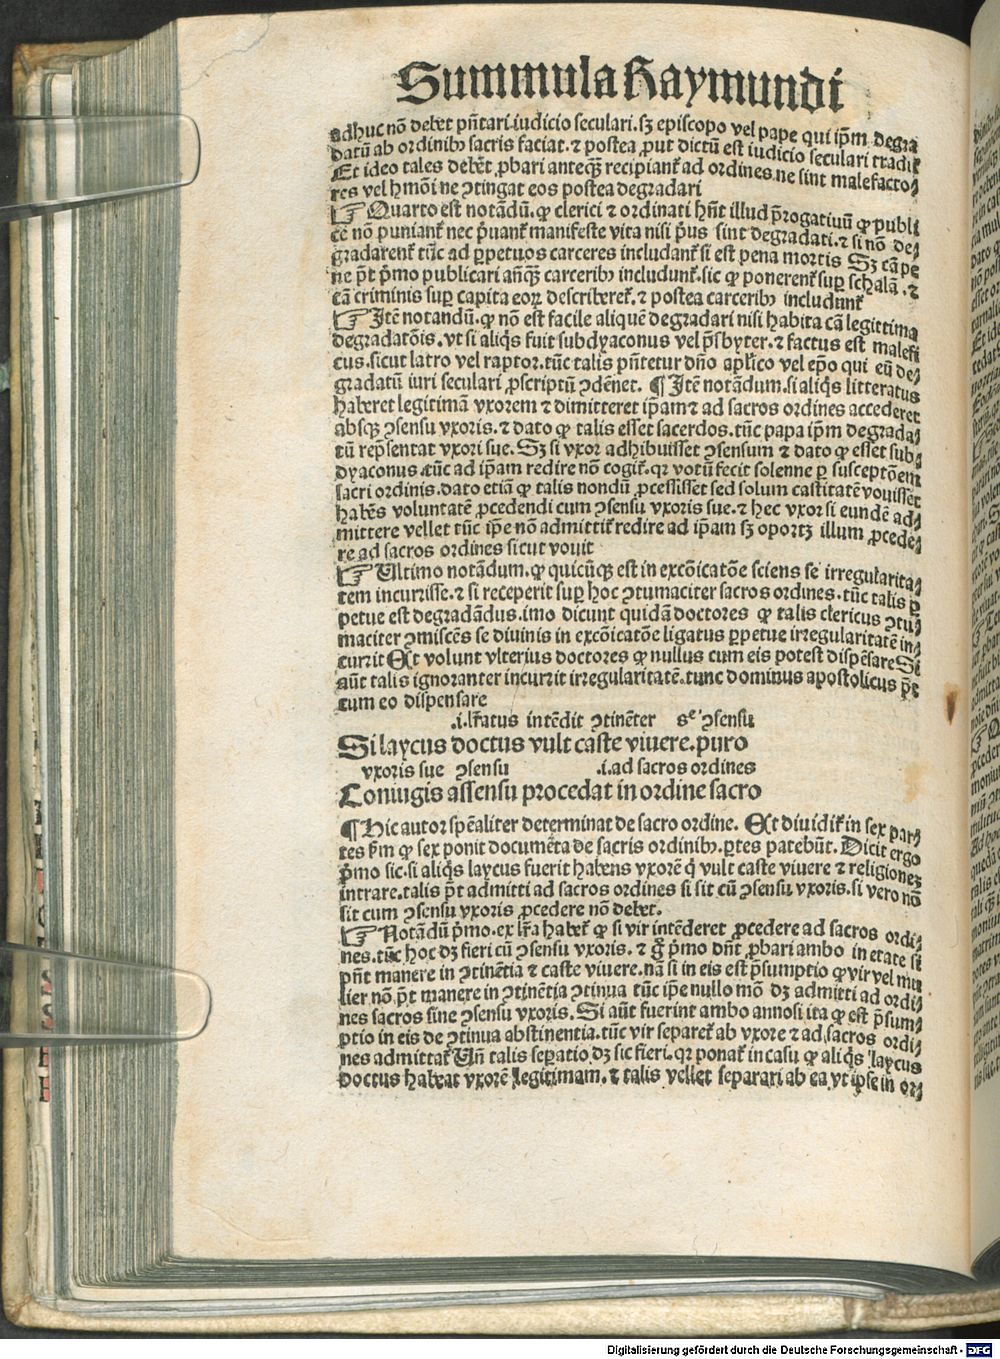 Summula Raymundi
adhuc nō debet pn̄tari.iudicio seculari.sꝫ episcopo vel pape qui ip̄m degra
datū ab ordinibꝫ sacris faciat.⁊ postea ꝓut dictū est iudicio seculari tradit̄
Et ideo tales debēt ꝓbari anteqꝫ recipiant̄ ad ordines.ne sint malefacto⸗
res vel hmōi ne ꝯtingat eos postea degradari
☞ Quarto est notādū.ꝙ clerici ⁊ ordinati hn̄t illud p̄rogatiuū ꝙ publi
ce nō puniant̄ nec p̄uant̄ manifeste vita nisi pͥus sint degradati.⁊ si nō de⸗
gradarent̄ tūc ad ꝑpetuos carceres includant̄ si est pena mortis Sꝫ cā pe
ne pn̄t pͥmo publicari anqꝫ carceribꝫ includunt̄.sic ꝙ ponerent̄ suꝑ schalā.⁊
cā criminis suꝑ capita eoꝝ describeret̄.⁊ postea carceribꝫ includunt̄
☞ Itē notandū.ꝙ nō est facile aliquē degradari nisi habita cā legittima
degradatōis.vt si aliqͥs fuit subdyaconus vel p̄sbyter.⁊ factus est malefi
cus.sicut latro vel raptor.tūc talis pn̄tetur dn̄o apl̄ico vel ep̄o qui eū de⸗
gradatū iuri seculari ꝓscriptū ꝯdēnet. ¶ Itē notādum.si aliqͥs litteratus
haberet legitimā vxorem ⁊ dimitteret ip̄am ⁊ ad sacros ordines accederet
absqꝫ ꝯsensu vxoris.⁊ dato ꝙ talis esset sacerdos.tūc papa ip̄m degrada⸗
tū rep̄sentat vxori sue.Sꝫ si vxor adhibuisset ꝯsensum ⁊ dato ꝙ esset sub⸗
dyaconus tūc ad ip̄am redire nō cogit̄.qr votū fecit solenne ꝑ susceptōem
sacri ordinis.dato etiā ꝙ talis nondū ꝓcessisset sed solum castitatē vouisset
habēs voluntatē ꝓcedendi cum ꝯsensu vxoris sue.⁊ hec vxor si eundē ad⸗
mittere vellet tūc ip̄e nō admittit̄ redire ad ip̄am sꝫ oportꝫ illum ꝓcede⸗
re ad sacros ordines sicut vouit
☞ Ultimo notādum.ꝙ quicūqꝫ est in excōicatōe sciens se irregularita⸗
tem incurrisse.⁊ si receperit suꝑ hoc ꝯtumaciter sacros ordines.tūc talis ꝑ
petue est degradādus.imo dicunt quidā doctores ꝙ talis clericus ꝯtu⸗
maciter ꝯmiscēs se diuinis in excōicatōe ligatus ꝑpetue irregularitatē in⸗
currit Et volunt vlterius doctores ꝙ nullus cum eis potest dispēsare Si
aūt talis ignoranter incurrit irregularitatē.tunc dominus apostolicus pt̄
cum eo dispensare
.i.lr̄atus intēdit ꝯtinēter se ꝯsensu
Si laycus doctus vult caste viuere.puro
vxoris sue ꝯsensu .i.ad sacros ordines
Coniugis assensu procedat in ordine sacro
¶ Hic autor spēaliter determinat de sacro ordine. Et diuidit̄ in sex par⸗
tes sm̄ ꝙ sex ponit documēta de sacris ordinibꝫ.ꝑtes patebūt. Dicit ergo
pͥmo sic.si aliqͥs laycus fuerit habens vxorē qͥ vult caste viuere ⁊ religionez
intrare.talis pt̄ admitti ad sacros ordines si sit cū ꝯsensu vxoris.si vero nō
sit cum ꝯsensu vxoris ꝓcedere nō debet.
☞ Notādū pͥmo.ex lr̄a habet̄ ꝙ si vir intēderet ꝓcedere ad sacros ordi⸗
nes.tūc hoc dꝫ fieri cū ꝯsensu vxoris. ⁊ gͦ pͥmo dn̄t ꝓbari ambo in etate si
pn̄t manere in ꝯtinētia ⁊ caste viuere.nā si in eis est p̄sumptio ꝙ vir vel mu
lier nō pt̄ manere in ꝯtinētia ꝯtinua tūc ip̄e nullo mō dꝫ admitti ad ordi⸗
nes sacros sine ꝯsensu vxoris. Si aūt fuerint ambo annosi ita ꝙ est p̄sum⸗
ptio in eis de ꝯtinua abstinentia.tūc vir separet̄ ab vxore ⁊ ad sacros ordi⸗
nes admittat̄ Un̄ talis seꝑatio dꝫ sic fieri.qr ponat̄ in casu ꝙ aliqͥs laycus
doctus habeat vxorē legitimam.⁊ talis vellet separari ab ea vt ipse in or⸗
Digitalisierung gefördert durch die Deutsche Forschungsgemeinschaft - DFG